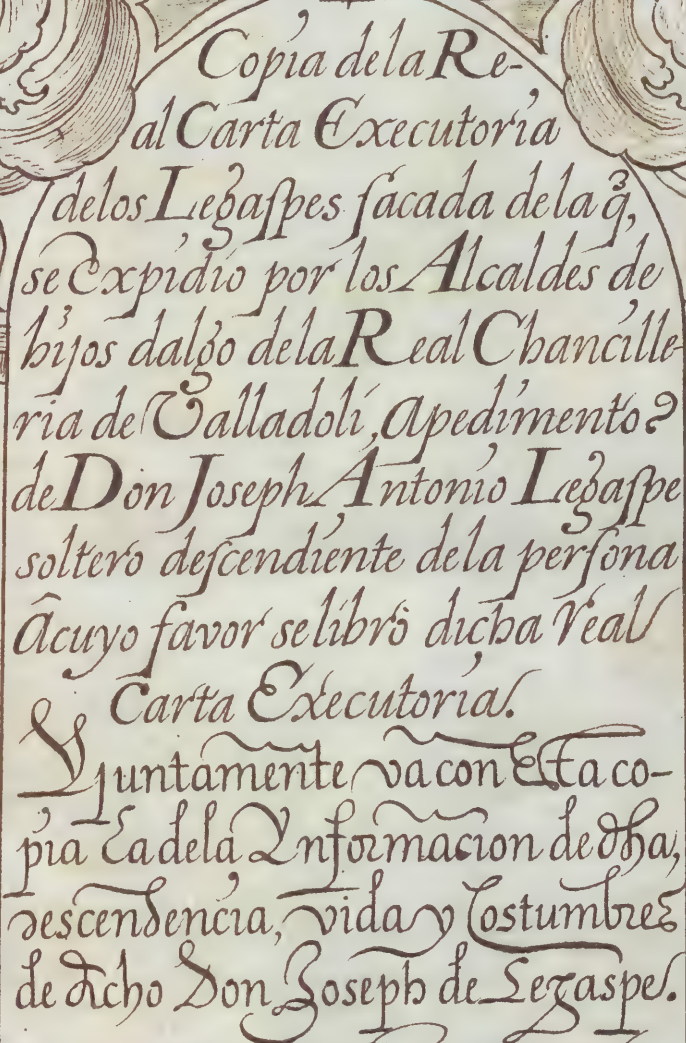 Copia de la Re-
al Carta Executoria
de los Legaſpes ſacada de la q̃,
se Expidio por los Alcaldes de
hijos dalgo de la Real Chancille
ria de Valladolí, A pedimento
de Don Joseph Antonio Legaſpe
soltero deſcendiente de la perſona
A cuyo favor se libró dicha Real
Carta Executoria.
Y juntamente va con Esta co-
pia la de la Ynformacion de dha,
descendencia, vida y Costumbres
de dicho Don Joseph de Legaspe.